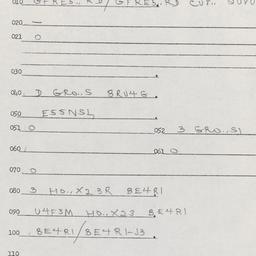 010 GFRES.. RD/GFRES.. RD CUT..
020 —
021 0
030
040 D GRO..S 8RU4G
050 ESSNSL
051 0 052 3 GRO..S1
060 061 0
070 0
080 3 HO..X23R 8E4R1
090 U4F3M HO..X23 8E4R1
100 8E4R1/8E4R1-J3
110